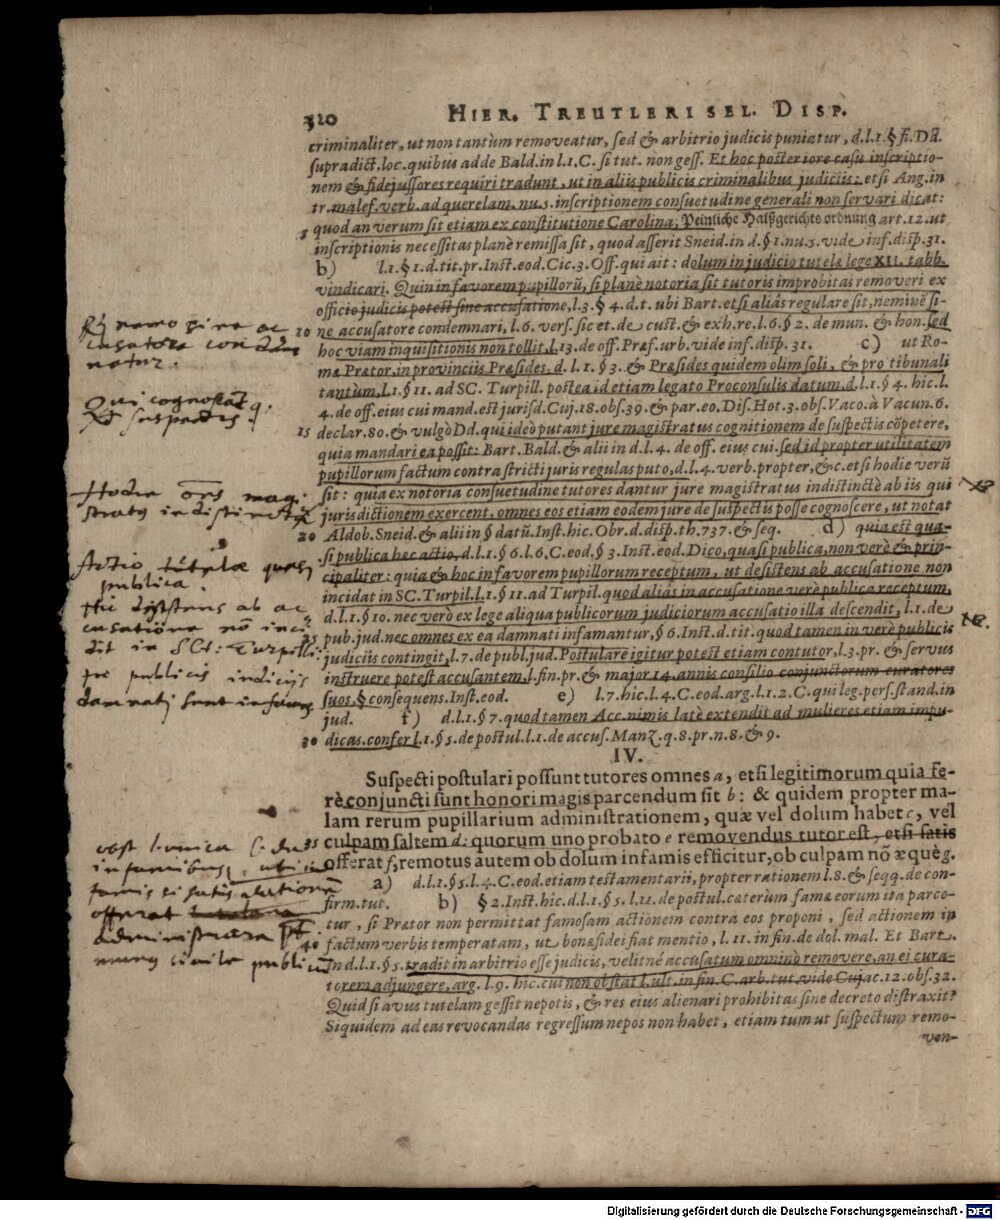 320 HIER. TREUTLERI SEL. DISP.
criminaliter, ut non tantùm removeatur, sed & arbitrio judicis puniatur, d.l.1. § fi. Dd.
supradict. loc. quibus adde Bald. in l.1. C. si tut. non gess. Et hoc posteriore casu inscriptio-
nem & fidejussores requiri tradunt, ut in aliis publicis criminalibus judiciis: etsi Ang. in
tr. malef. verb. ad querelam. nu.5. inscriptionem consuetudine generali non servari dicat:
5 quod an verum sit etiam ex constitutione Carolina, Peinliche Halßgerichts ordnung art. 12. ut
inscriptionis necessitas planè remissa sit, quod asserit Sneid. in d. § 1. nu. 5. vide inf. disp. 31.
b) l.1. § 1. d. tit. pr. Inst. eod. Cic. 3. Off. qui ait: dolum in judicio tutelæ lege XII. tabb.
vindicari. Quin in favorem pupillorũ, si planè notoria sit tutoris improbitas removeri ex
officio judicis potest sine accusatione, l.3. § 4. d. t. ubi Bart. etsi aliàs regulare sit, neminẽ si-
10 ne accusatore condemnari, l.6. vers. sic et. de cust. & exh. re. l.6. § 2. de mun. & hon. sed
hoc viam inquisitionis non tollit, l.13. de off. Præf. urb. vide inf. disp. 31. c) ut Ro-
mæ Prætor, in provinciis Præsides. d. l.1. § 3. & Præsides quidem olim soli, & pro tibunali
tantùm, l.1. § 11. ad SC. Turpill. postea id etiam legato Proconsulis datum, d. l.1. § 4. hic. l.
4. de off. eius cui mand. est jurisd. Cuj. 18. obs. 39. & par. eo. Dis. Hot. 3. obs. Vaco. à Vacun. 6.
15 declar. 80. & vulgò Dd. qui ideò putant jure magistratus cognitionem de suspectis cõpetere,
quia mandari ea possit: Bart. Bald. & alii in d. l.4. de off. eius cui. sed id propter utilitatem
pupillorum factum contra stricti juris regulas puto, d. l.4. verb. propter, &c. etsi hodie verũ
sit: quia ex notoria consuetudine tutores dantur jure magistratus indistinctè ab iis qui
jurisdictionem exercent, omnes eos etiam eodem jure de suspectis posse cognoscere, ut notat
20 Aldob. Sneid. & alii in § datũ. Inst. hic. Obr. d. disp. th. 737. & seq. d) quia est qua-
si publica hæc actio, d. l.1. § 6. l.6. C. eod. § 3. Inst. eod. Dico, quasi publica, non verè & prin-
cipaliter: quia & hoc in favorem pupillorum receptum, ut desistens ab accusatione non
incidat in SC. Turpil. l.1. § 11. ad Turpil. quod aliàs in accusatione verè publica receptum,
d. l.1. § 10. nec verò ex lege aliqua publicorum judiciorum accusatio illa descendit, l.1. de
25 pub. jud. nec omnes ex ea damnati infamantur, § 6. Inst. d. tit. quod tamen in verè publicis
judiciis contingit, l.7. de publ. jud. Postulare igitur potest etiam contutor, l.3. pr. & servus
instruere potest accusantem, l. fin. pr. & major 14. annis consilio conjunctorum curatores
suos, § consequens. Inst. eod. e) l.7. hic. l.4. C. eod. arg. l.1. 2. C. qui leg. pers. stand. in
jud. f) d. l.1. § 7. quod tamen Acc. nimis latè extendit ad mulieres etiam impu-
30 dicas. confer l.1. § 5. de postul. l.1. de accus. Manz. q. 8. pr. n. 8. & 9.
IV.
Suspecti postulari possunt tutores omnes a, etsi legitimorum quia fe-
rè conjuncti sunt honori magis parcendum sit b: & quidem propter ma-
lam rerum pupillarium administrationem, quæ vel dolum habet c, vel
35 culpam saltem d: quorum uno probato e removendus tutor est, etsi satis
offerat f, remotus autem ob dolum infamis efficitur, ob culpam nõ æquè g.
a) d. l.1. § 5. l.4. C. eod. etiam testamentarii, propter rationem l.8. & seqq. de con-
firm. tut. b) § 2. Inst. hic. d. l.1. § 5. l.11. de postul. cæterùm fama eorum ita parce-
tur, si Prætor non permittat famosam actionem contra eos proponi, sed actionem in
40 factum verbis temperatam, ut bonæ fidei fiat mentio, l.11. in fin. de dol. mal. Et Bart.
in d. l.1. § 5. tradit in arbitrio esse judicis, velitné accusatum omnino removere, an ei cura-
torem adjungere, arg. l.9. hic. cui non obstat l. ult. in fin. C. arb. tut. vide Cujac. 12. obs. 32.
Quid si avus tutelam gessit nepotis, & res eius alienari prohibitas sine decreto distraxit?
Siquidem ad eas revocandas regressum nepos non habet, etiam tum ut suspectum remo-
ven-
nemo sine ac
cusatore con
natur.
Qui cognoscat q.
suspectis
Hodie oẽs magi
stratus indistincte
Actio tutelæ quasi
publica
Hic desistens ab ac
cusatione nõ inci
dit in SCt: Turpill:
publicis iudiciis
damnati sunt infames
infamibus
tamis si satisdationem
offerat
administrare
munus civile publicum
Digitalisierung gefördert durch die Deutsche Forschungsgemeinschaft - DFG